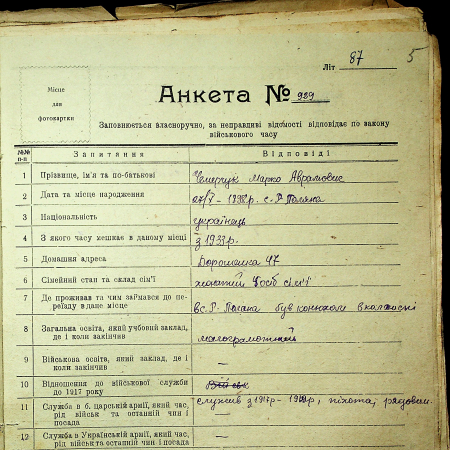 Літ 87 5
Місце
для
фотокартки
Анкета № 989
Заповнюється власноручно, за неправдиві відомості відповідає по закону
військового часу
№№ п-п Запитання Відповіді
1 Прізвище, ім'я та по-батькові Марко Аврамович
2 Дата та місце народження с. Р-Поляна
3 Національність українець
4 З якого часу мешкає в даному місці
5 Домашня адреса 47
6 Сімейний стан та склад сім'ї жонатий осіб сім'ї
7 Де проживав та чим займався до пе-
реїзду в дане місце в с. Р-Поляна був конюхом в колгоспі
8 Загальна освіта, який учбовий заклад,
де і коли закінчив малограмотний
9 Військова освіта, який заклад, де і
коли закінчив —
10 Відношення до військової служби
до 1917 року
11 Служба в б. царській армії, який час,
рід військ та останній чин і
посада служив з піхота, рядовим
12 Служба в Українській армії, який час,
рід військ та останній чин і посада —